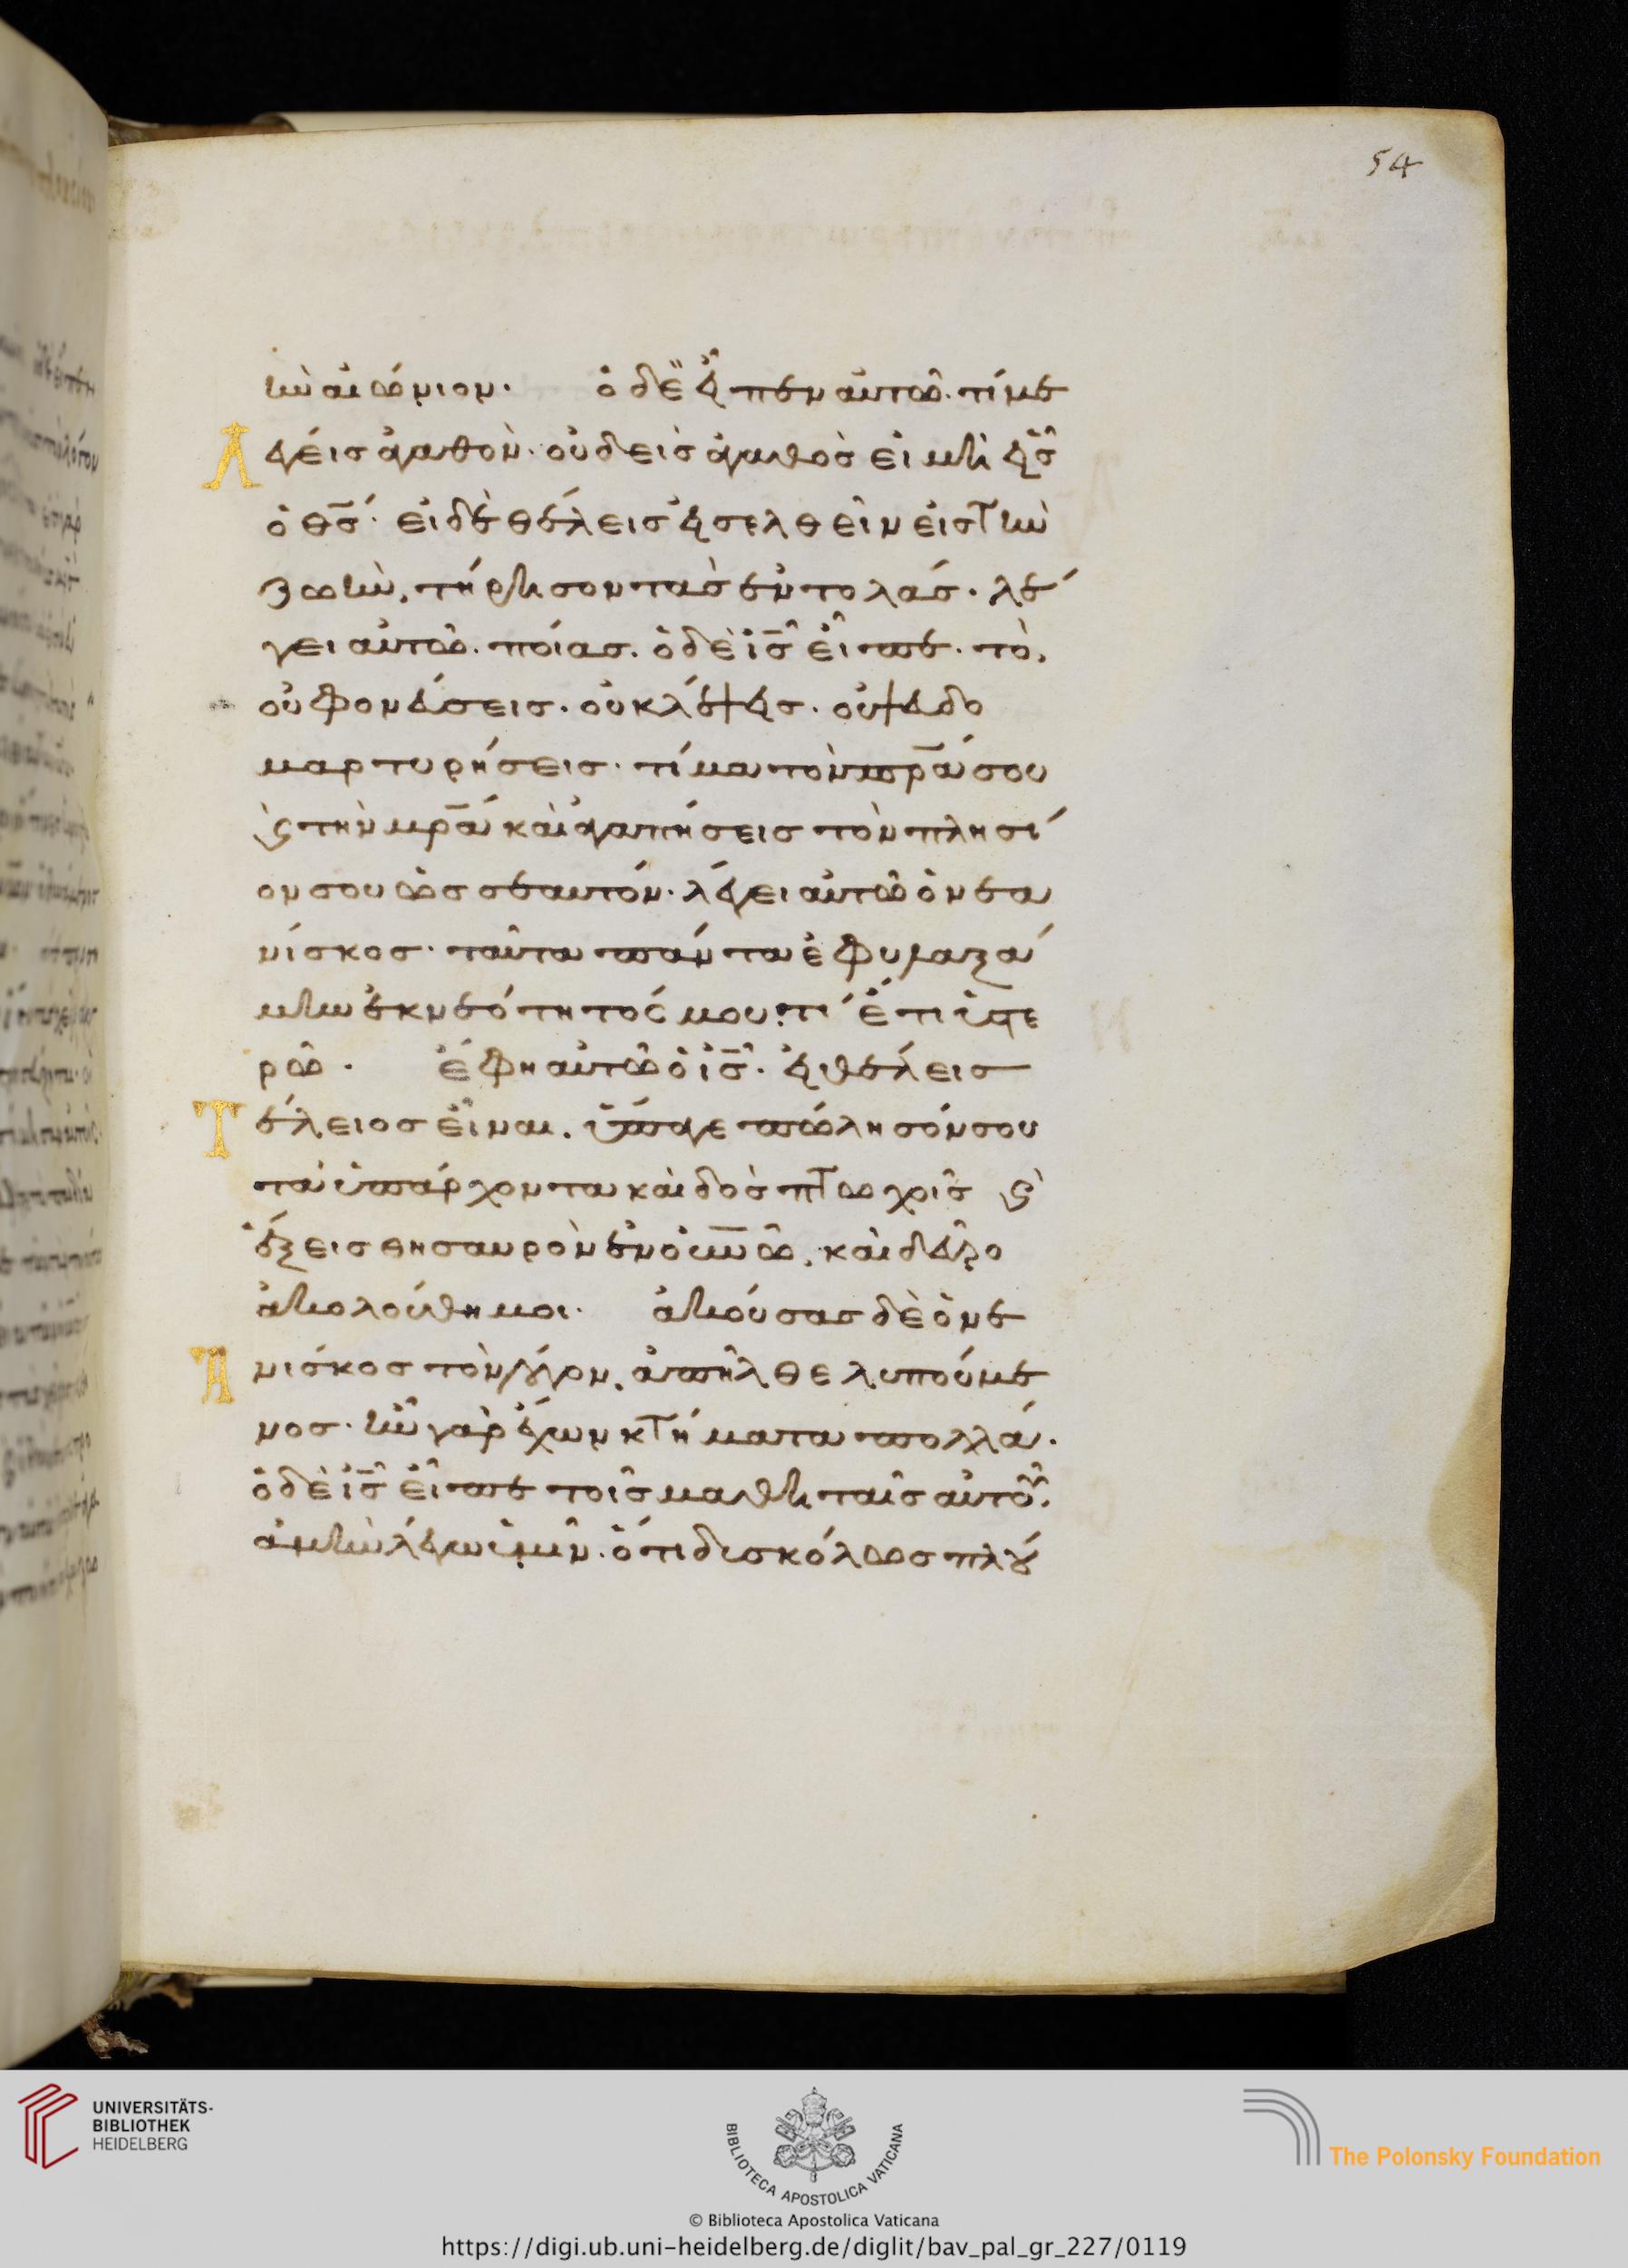 54
ὴν αἰώνιον· ὁ δὲ εἶπεν αὐτῶ· τί με
Λέγεις ἀγαθὸν· οὐδεὶς ἀγαθὸς εἰ μὴ εἷς
ὁ θς· εἰ δὲ θέλεις εἰσελθεῖν εἰς τὴν
ζωὴν, τήρησον τὰς ἐντολάς· λέ
γει αὐτῶ· ποίας· ὁ δὲ ις εἶπε· τὸ,
οὐ φονεύσεις· οὐ κλέψεις· οὐ ψευδο
μαρτυρήσεις· τίμα τὸν πρα σου
ϗ τὴν μρα καὶ ἀγαπήσεις τὸν πλησί
ον σου ὡς σεαυτόν· λέγει αὐτῶ ὁ νεα
νίσκος· ταῦτα πάντα ἐφυλαξά
μην ἐκ νεότητός μου· τί ἔτι ὑστε
ρῶ· ἔφη αὐτῶ ὁ ις· εἰ θέλεις
Τέλειος εἶναι, ὕπαγε πώλησόν σου
τὰ ὑπάρχοντα καὶ δὸς πτωχοῖς ϗ
ἕξεις θησαυρὸν ἐν οὐνῶ, καὶ δεῦρο
ἀκολούθη μοι· ἀκούσας δὲ ὁ νε
Ανίσκος τὸν λόγον, ἀπῆλθε λυπούμε
νος· ἦν γὰρ ἔχων κτήματα πολλά·
ὁ δὲ ις εἶπε τοῖς μαθηταῖς αὐτοῦ·
ἀμὴν λέγω ὑμῖν· ὅτι δυσκόλως πλού
UNIVERSITÄTS-
BIBLIOTHEK
HEIDELBERG
BIBLIOTECA APOSTOLICA VATICANA
The Polonsky Foundation
© Biblioteca Apostolica Vaticana
https://digi.ub.uni-heidelberg.de/diglit/bav_pal_gr_227/0119